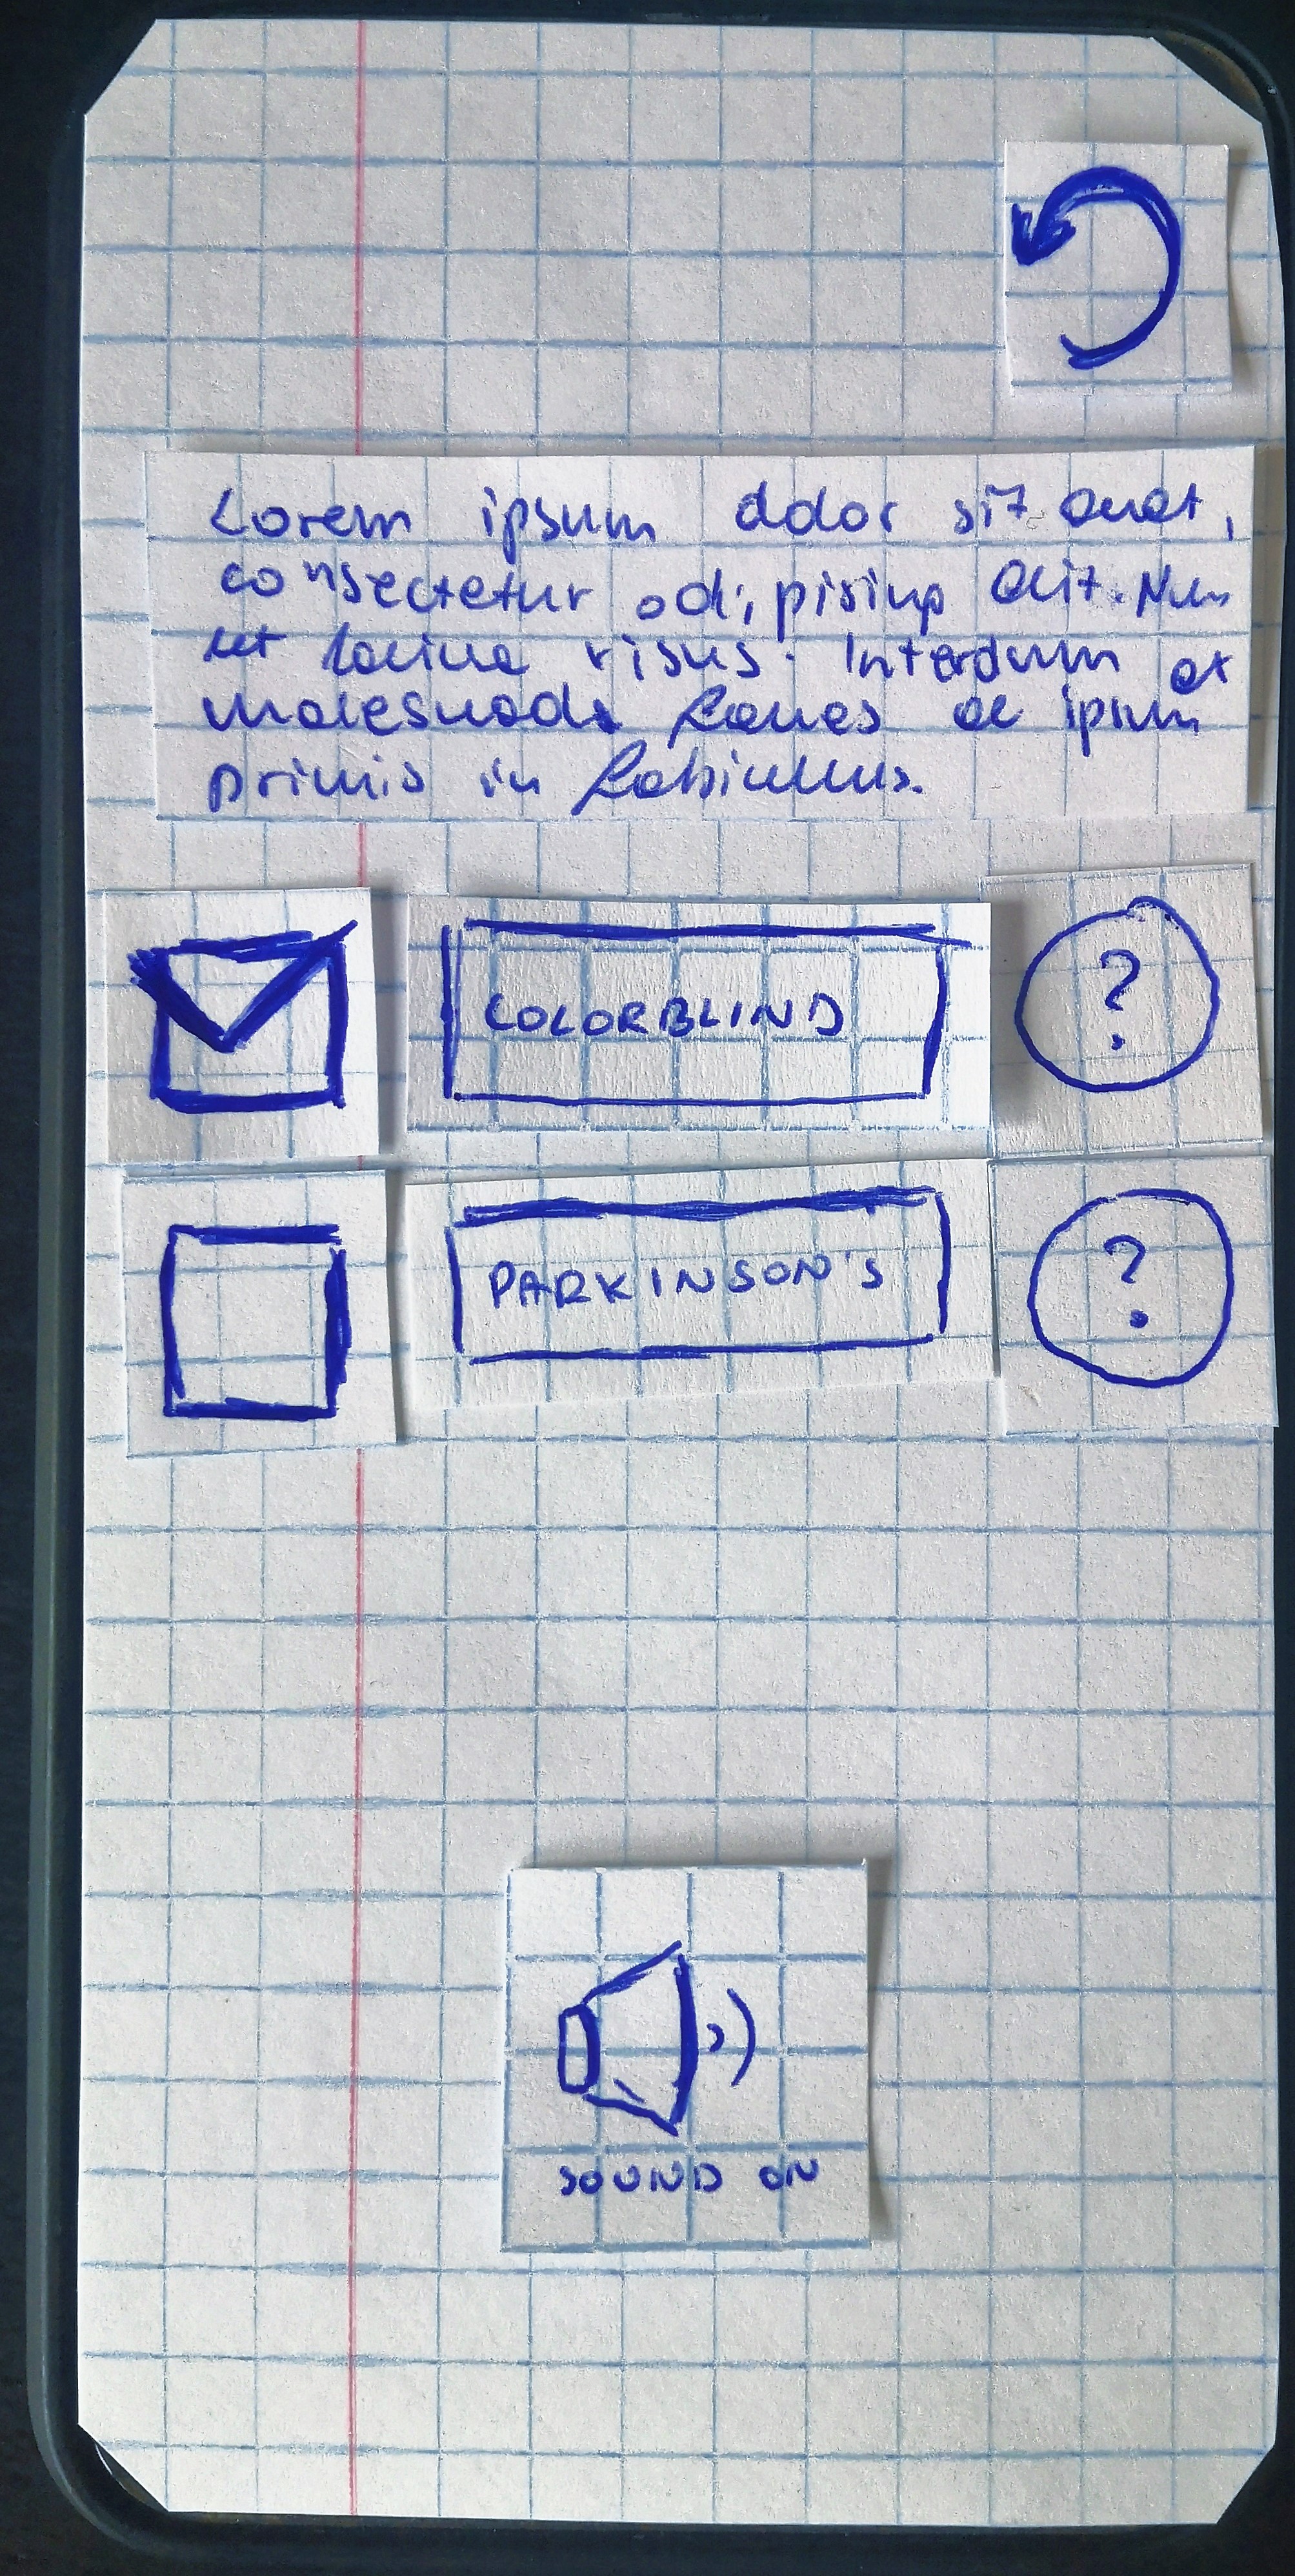 Lorem ipsum dolor sit amet,
consectetur adipising elit. Nam
ut lacinia risus. Interdum et
malesuada fames ac ipsum
primis in
?
COLORBLIND
?
PARKINSON'S
SOUND ON